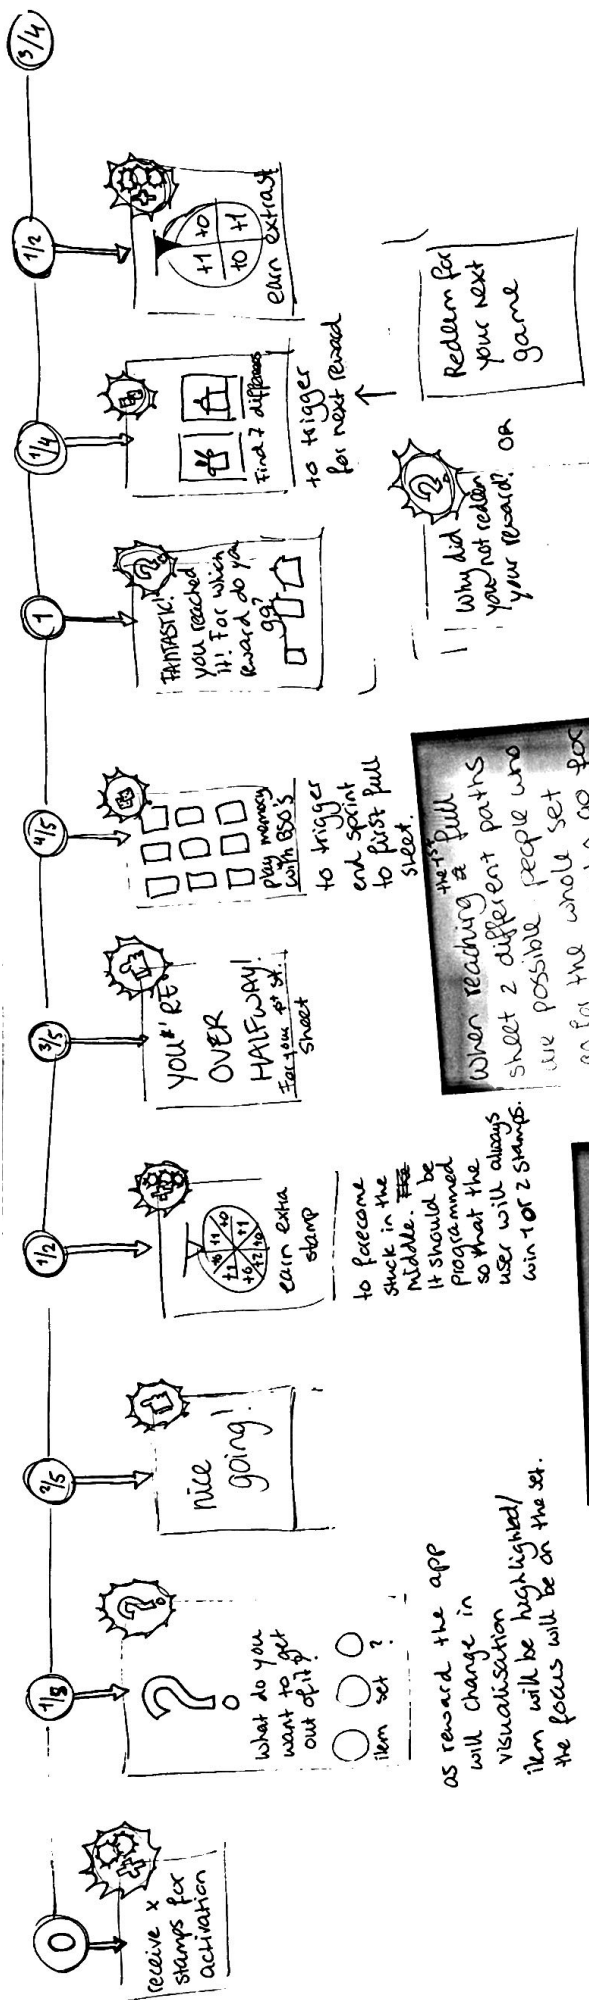 0
receive x
stamps for
activation
1/8
?
?
What do you
want to get
out of it?
item set ?
as reward the app
will change in
visualisation
item will be highlighted/
the focus will be on the set.
2/5
nice
going!
1/2
+1
+0
+1
earn extra
stamp
to forecome
stuck in the
middle.
It should be
programmed
so that the
user will always
win 1 or 2 stamps.
3/5
YOU'RE
OVER
HALFWAY!
For your 1st st.
sheet
4/5
play memory
with BSO's
to trigger
end sprint
to first full
sheet.
When reaching the 1st full
sheet 2 different paths
are possible people who
go for the whole set
go for
1
?
FANTASTIK!
you reached
it! For which
reward do you
go?
?
Why did
you not redeem
your reward?
OR
Redeem for
your next
game
1/4
Find 7 differences
to trigger
for next reward
1/2
+1
+0
+0
+1
earn extra st.
3/4